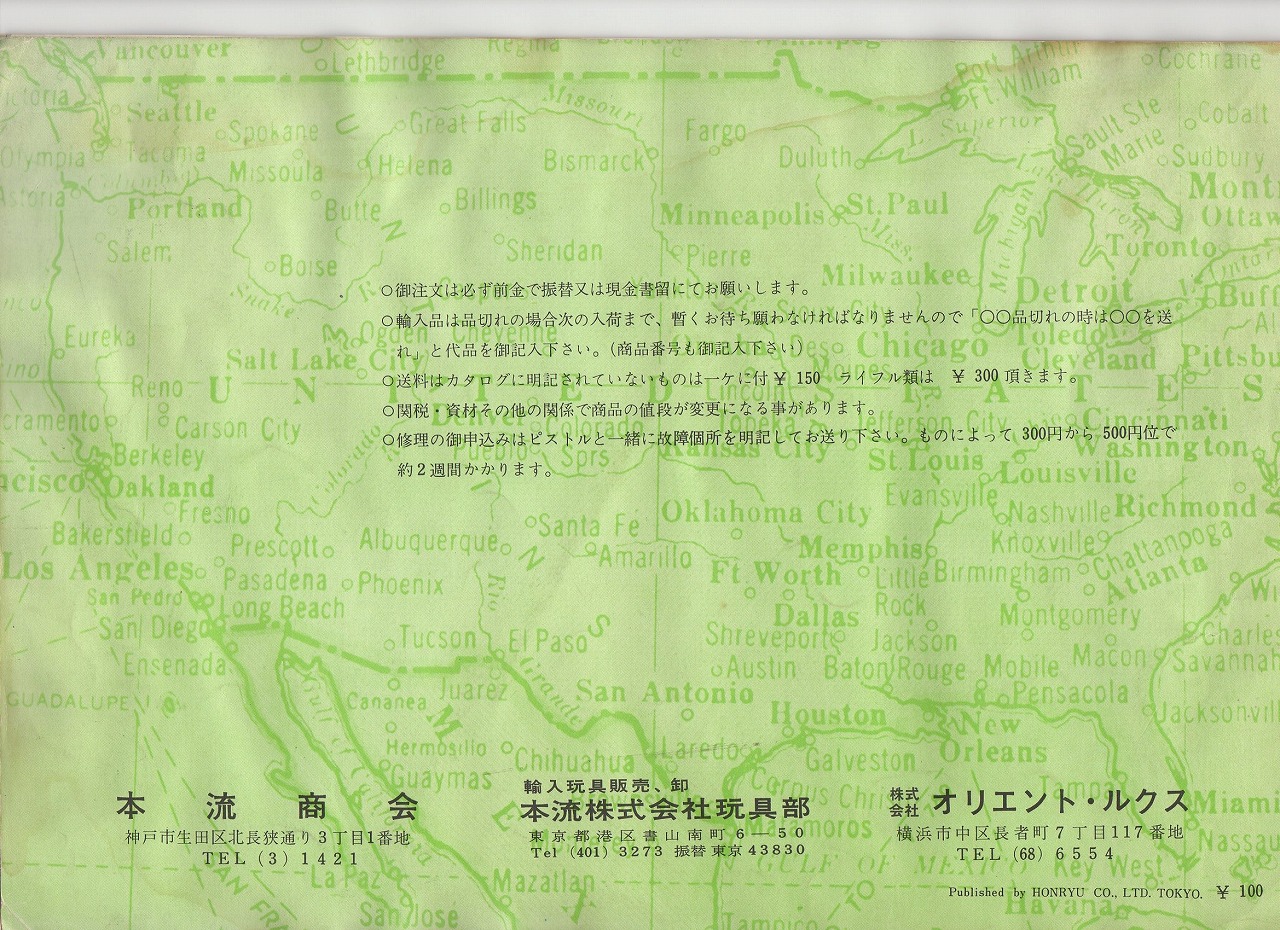 Vancouver
Lethbridge
Regina
Winnipeg
Port Arthur
Ft. William
Cochrane
Victoria
Seattle
Spokane
Great Falls
Missouri
Fargo
Superior
Sault Ste
Marie
Cobalt
Olympia
Tacoma
Missoula
Helena
Bismarck
Duluth
Sudbury
Astoria
Columbia
Portland
Butte
Billings
Minneapolis
St. Paul
Michigan
L. Huron
Salem
Boise
Sheridan
Pierre
Miss.
Milwaukee
Toronto
Snake
Detroit
○御注文は必ず前金で振替又は現金書留にてお願いします。
○輸入品は品切れの場合次の入荷まで、暫くお待ち願わなければなりませんので「〇〇品切れの時は〇〇を送
れ」と代品を御記入下さい。(商品番号も御記入下さい)
○送料はカタログに明記されていないものは一ケに付¥ 150 ライフル類は ¥ 300 頂きます。
○関税・資材その他の関係で商品の値段が変更になる事があります。
○修理の御申込みはピストルと一緒に故障個所を明記してお送り下さい。ものによって 300円から 500円位で
約2週間かかります。
Eureka
Ogden
Toledo
Salt Lake City
Chicago
Cleveland
Reno
UNITED STATES
Carson City
Denver
Colorado
Cincinnati
Berkeley
Pueblo
Sprs
Kansas City
St Louis
Washington
Oakland
Colorado
Louisville
Fresno
Oklahoma City
Evansville
Nashville
Richmond
Bakersfield
Prescott
Albuquerque
Santa Fe
Amarillo
Memphis
Knoxville
Chattanooga
Los Angeles
Pasadena
Phoenix
Ft. Worth
Little
Rock
Birmingham
Atlanta
San Pedro
Long Beach
Rio
Grande
Dallas
Montgomery
San Diego
Tucson
El Paso
Shreveport
Jackson
Ensenada
Austin
Baton Rouge
Mobile
Macon
Savannah
GUADALUPE I.
Cananea
Juarez
San Antonio
Pensacola
Houston
New
Orleans
Hermosillo
Chihuahua
Laredo
Galveston
Guaymas
Corpus Chri
Tampa
Gulf of
Miami
本流商会
神戸市生田区北長狭通り3丁目1番地
TEL (3) 1421
輸入玩具販売、卸
本流株式会社玩具部
東京都港区書山南町6―50
Tel (401) 3273 振替東京43830
株式会社 オリエント・ルクス
横浜市中区長者町7丁目117番地
TEL (68) 6554
Matamoros
Nassau
GULF OF MEXICO
Key West
La Paz
Mazatlan
San Jose
Tampico
Havana
Published by HONRYU CO., LTD. TOKYO. ¥ 100